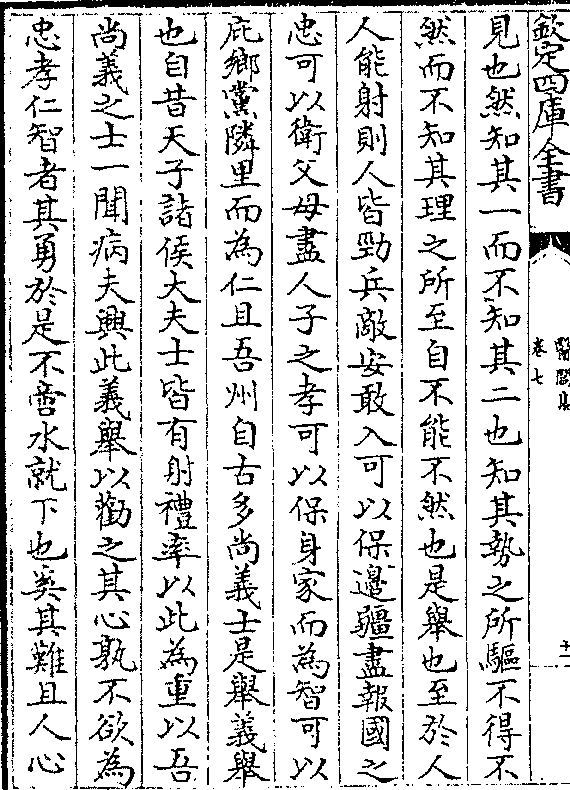 欽定四庫全書
醫閭集
卷七
十一
見也然知其一而不知其二也知其勢之所驅不得不
然而不知其理之所至自不能不然也是舉也至於人
人能射則人皆勁兵敵安敢入可以保邊疆盡報國之
忠可以衛父母盡人子之孝可以保身家而為智可以
庇鄉黨隣里而為仁且吾州自古多尚義士是舉義舉
也自昔天子諸侯大夫士皆有射禮率以此為重以吾
尚義之士一聞病夫興此義舉以勸之其心孰不欲為
忠孝仁智者其勇於是不啻水就下也奚其難且人心